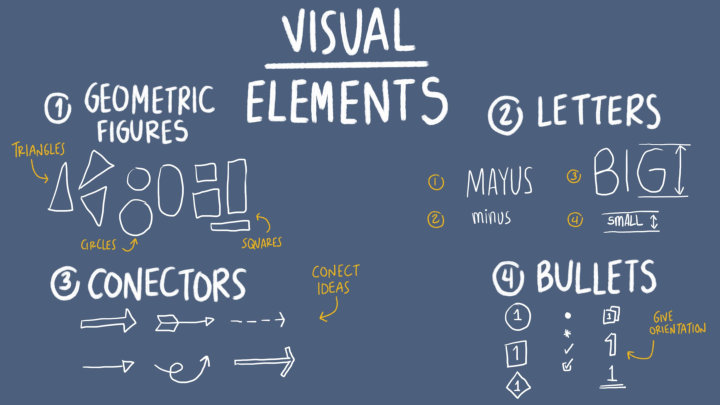 VISUAL
ELEMENTS
1 GEOMETRIC
FIGURES
TRIANGLES
CIRCLES
SQUARES
2 LETTERS
1 MAYUS
2 minus
3 BIG
4 SMALL
3 CONECTORS
CONECT
IDEAS
4 BULLETS
1
1
1
1
1
1
GIVE
ORIENTATION